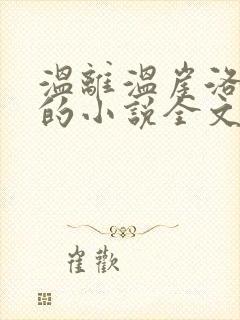 温離温崖洛
的小說全文
崔歡